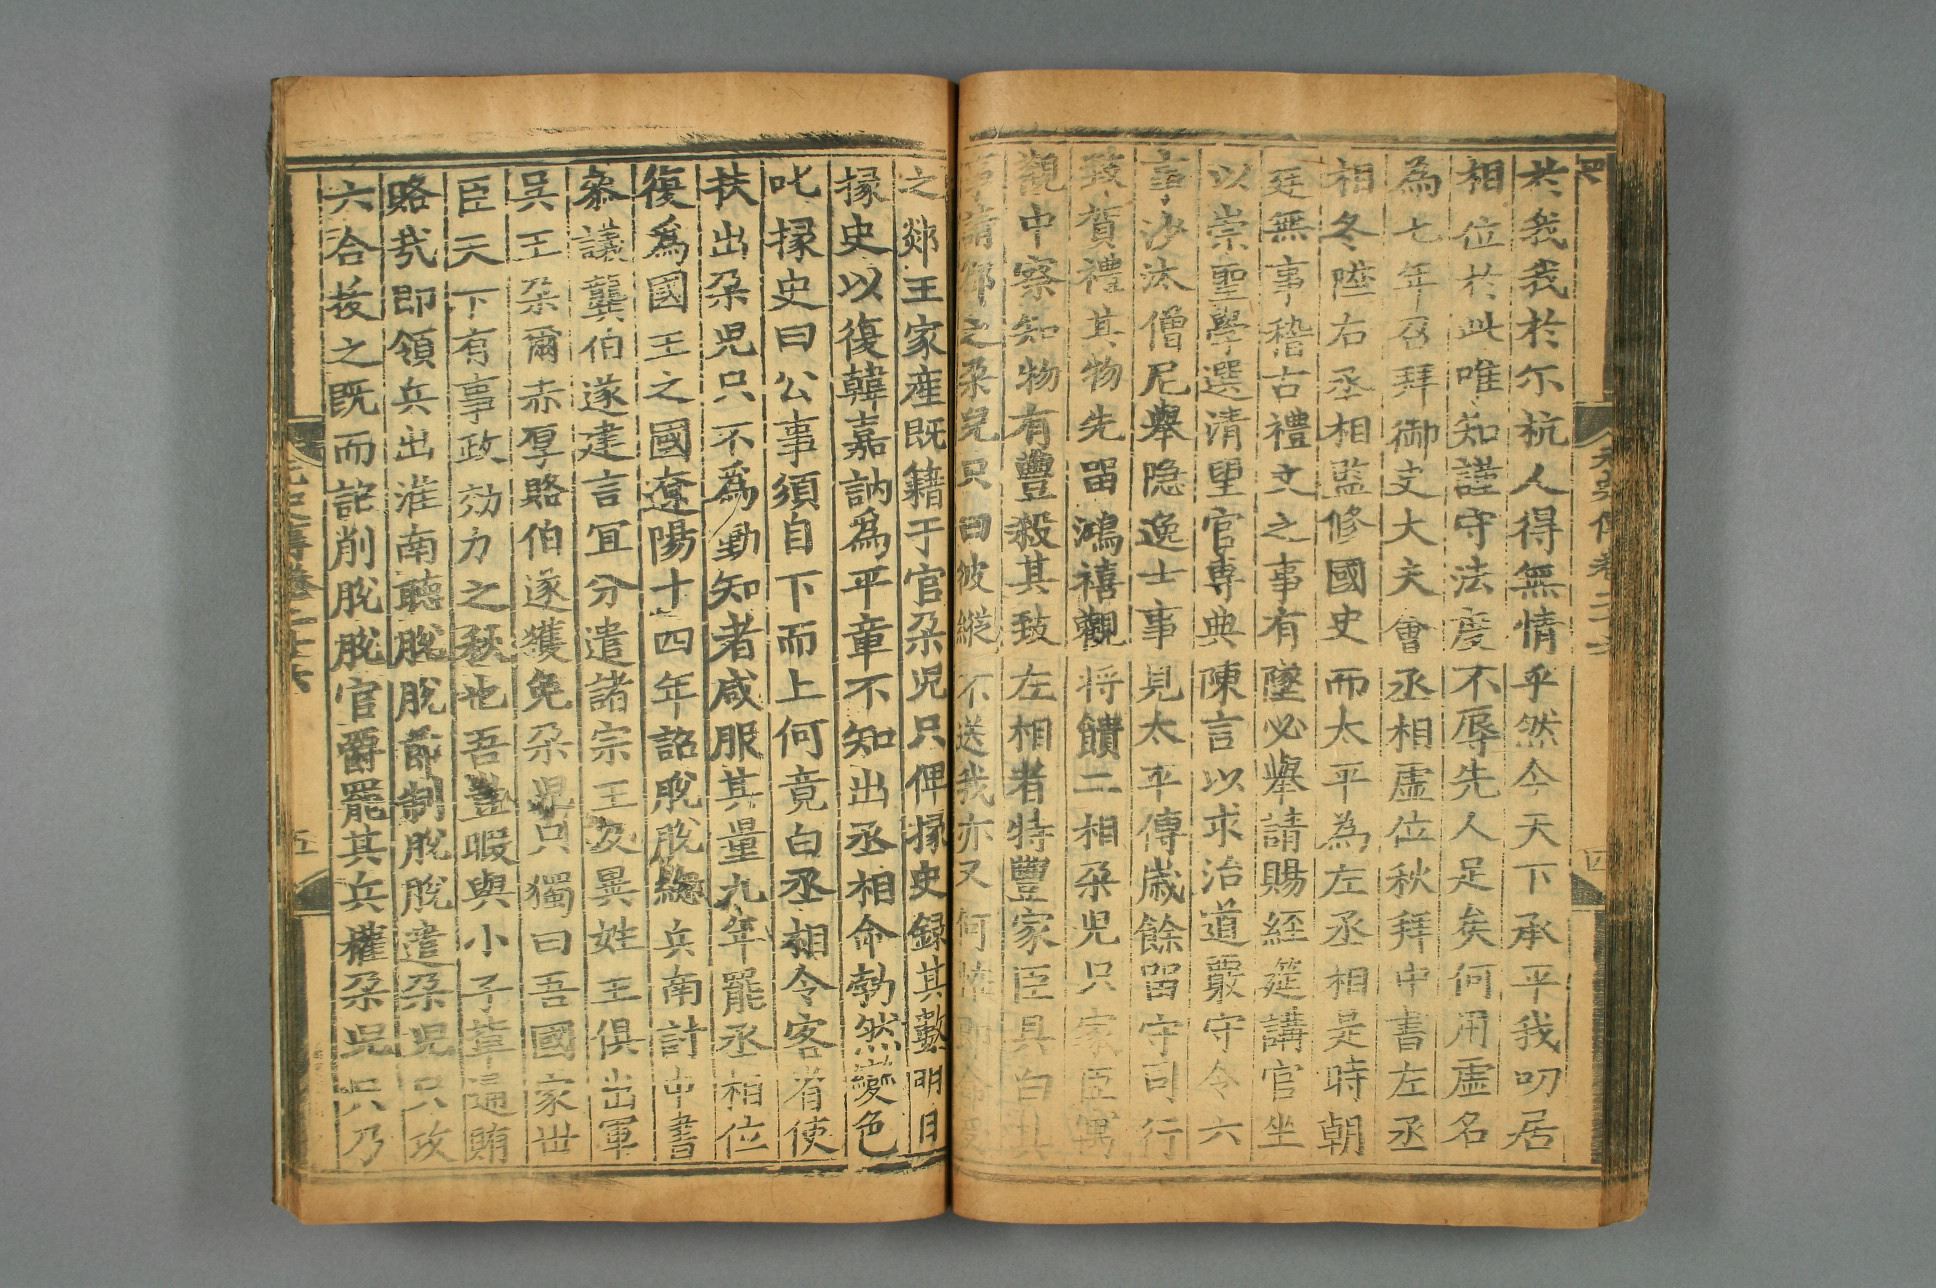 於我我於尓杭人得無情乎然今天下承平我叨居
相位於此唯知謹守法度不辱先人足矣何用虛名
為七年召拜御史大夫會丞相虛位秋拜中書左丞
相冬陞右丞相監修國史而太平為左丞相是時朝
廷無事稽古禮文之事有墜必舉請賜經筵講官坐
以崇聖學選清望官専典陳言以求治道覈守令六
事沙汰僧尼舉隐逸士事見太平傳歲餘留守司行
致賀禮其物先留鴻禧觀将饋二相朶児只家臣寓
觀中察知物有豐殺其致左相者特豐家臣具白其
事請却之朶児只曰彼縱不送我亦又何怪即命受
之郯王家産既籍于官朶児只俾掾史録其數明日
掾史以復韓嘉訥為平章不知出丞相命勃然變色
叱掾史曰公事須自下而上何竟白丞相令客省使
扶出朶児只不為動知者咸服其量九年罷丞相位
復為國王之國遼陽十四年詔脫脫緫兵南討中書
叅議龔伯遂建言宜分遣諸宗王及異姓王俱出軍
吳王朶爾赤厚賂伯遂獲免朶児只獨曰吾國家世
臣天下有事政効力之秋也吾豈暇與小子輩通賄
賂㢤即領兵出淮南聽脫脫節制脫脫遣朶児只攻
六合拔之既而詔削脫脫官爵罷其兵權朶児只乃
元史傳卷二十六
五